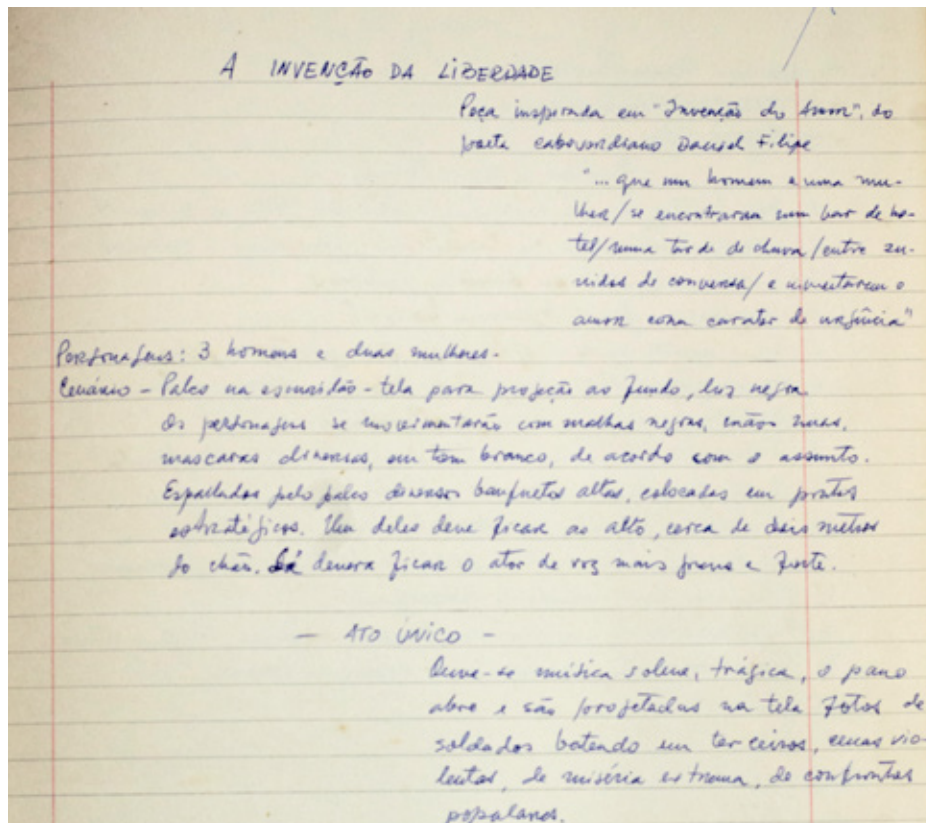 A INVENÇÃO DA LIBERDADE
Peça inspirada em "Invenção do Amor", do
poeta caboverdiano Daniel Filipe
"... que um homem e uma mu-
lher/se encontraram num bar de ho-
tel/numa tarde de chuva/entre zu-
nidos de conversa/ e inventaram o
amor com carater de urgência"
Personagens: 3 homens e duas mulheres.
Cenário - Palco na escuridão - tela para projeção ao fundo, luz negra
Os personagens se movimentarão com malhas negras, mãos nuas,
mascaras diversas, em tom branco, de acordo com o assunto.
Espalhados pelo palco diversos banquetos altos, colocados em pontos
estratégicos. Um deles deve ficar ao alto, cerca de dois metros
do chão. Lá devera ficar o ator de voz mais grave e forte.
- ATO ÚNICO -
Ouve-se música solene, trágica, o pano
abre e são projetadas na tela fotos de
soldados batendo em terceiros, cenas vio-
lentas, de miséria extrema, de confrontos
populares.